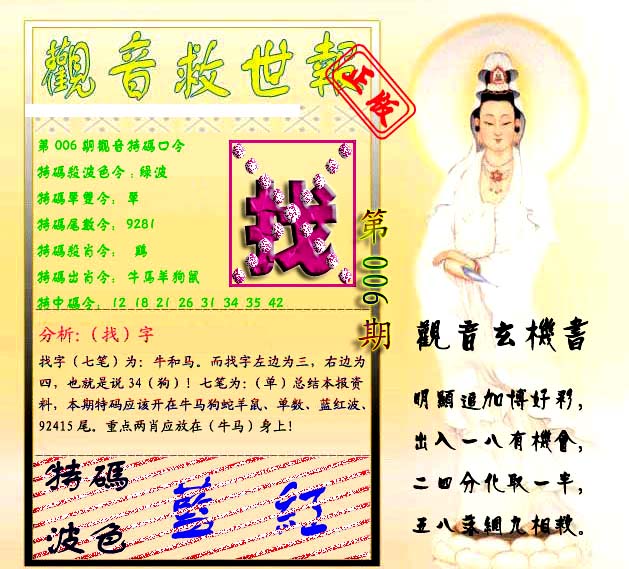 觀音救世報
正版
第 006 期觀音特碼口令
特碼殺波色令：绿波
特碼單雙令： 單
特碼尾數令： 9281
特碼殺肖令： 鷄
特碼出肖令： 牛馬羊狗鼠
特中碼令： 12 18 21 26 31 34 35 42
找
第 006 期
分析：（找）字
找字（七笔）为：牛和马。而找字左边为三，右边为
四，也就是说 34（狗）！七笔为：（单）总结本报资
料，本期特码应该开在牛马狗蛇羊鼠、单数、蓝红波、
92415 尾。重点两肖应放在（牛马）身上！
特碼
波色
藍 红
觀音玄機書
明顯追加博好彩，
出入一八有機會，
二四分化取一半，
五八業細九相救。